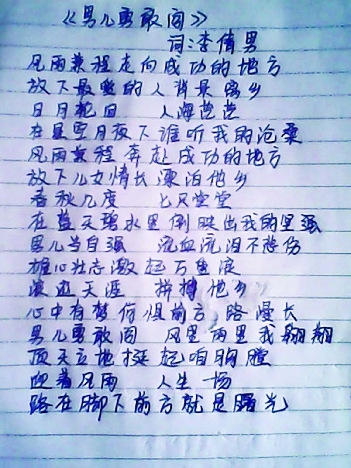 《男儿勇敢闯》
词:李倩男
风雨兼程走向成功的地方
放下最爱的人背景离乡
日月轮回 人海茫茫
在星雪月夜下谁听我的沧桑
风雨兼程奔赴成功的地方
放下儿女情长漂泊他乡
春秋几度 七尺堂堂
在蓝天碧水里倒映出我的坚强
男儿当自强 流血流泪不悲伤
雄心壮志激起万重浪
浪迹天涯 拼搏他乡
心中有梦何惧前方,路漫长
男儿勇敢闯 风里雨里我翱翔
顶天立地挺起咱胸膛
迎着风雨 人生一场
路在脚下前方就是曙光